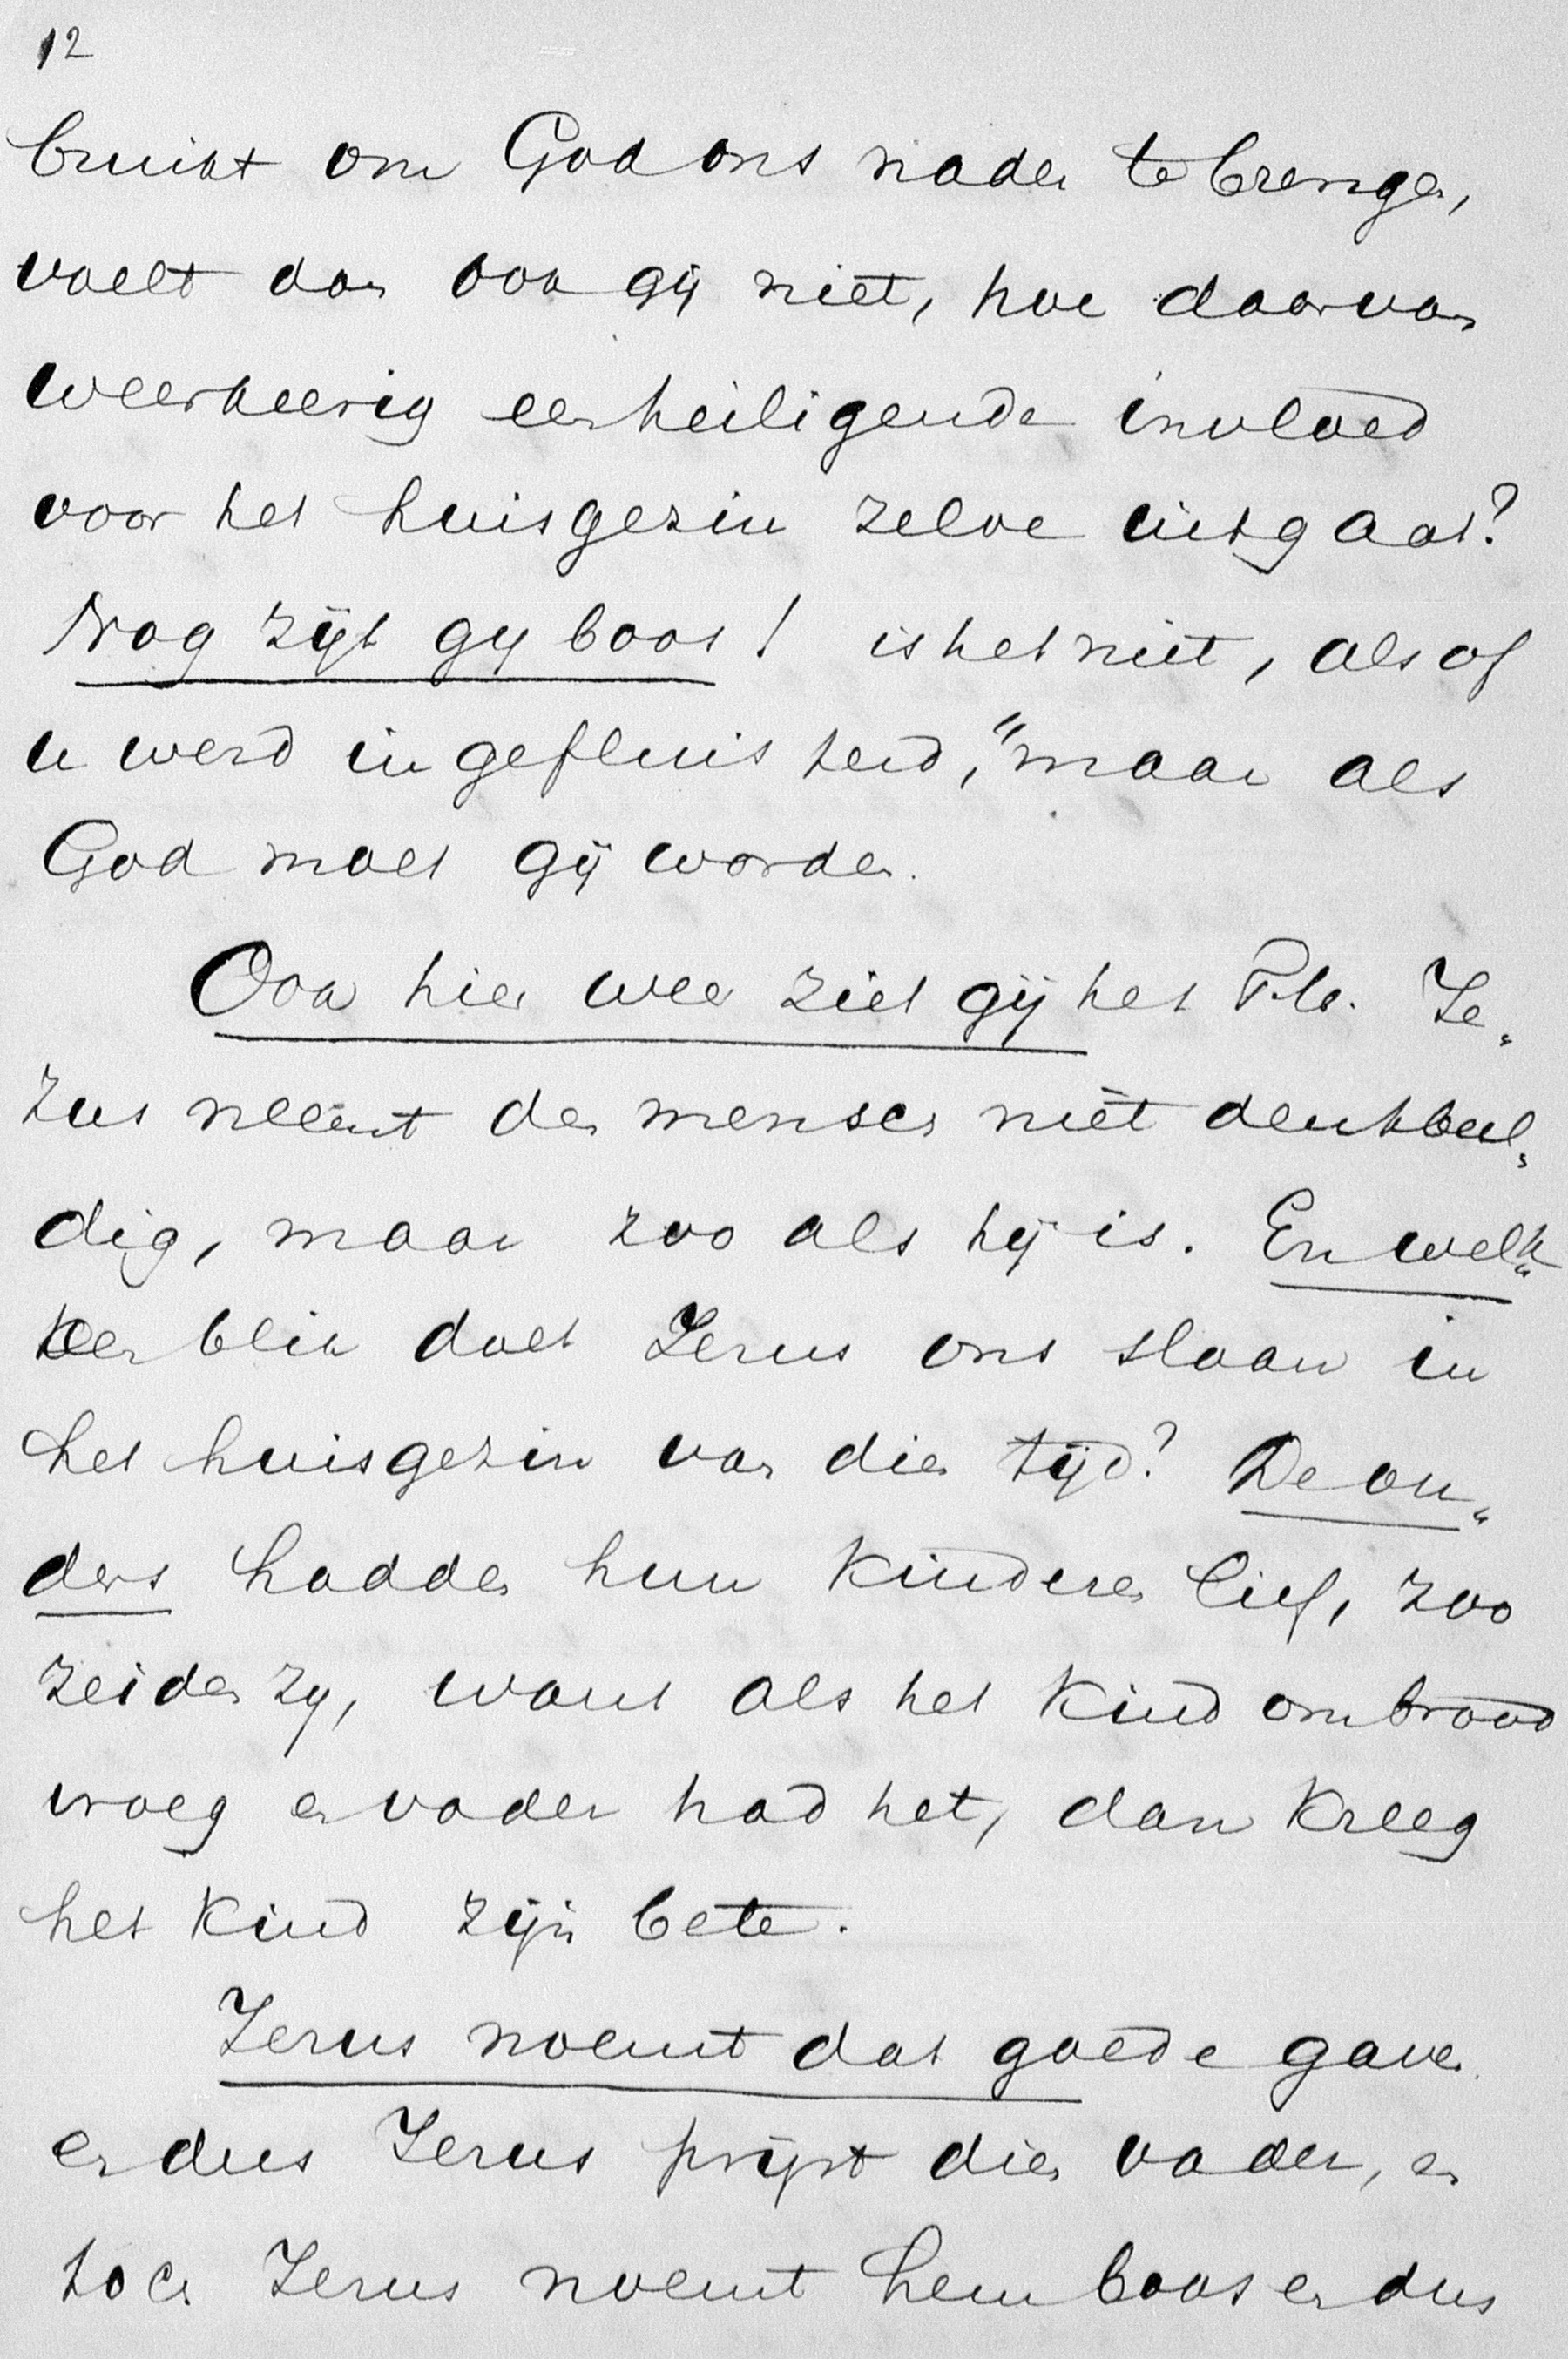 12
bruikt om God ons nader te brengen,
voelt dan ook gij niet, hoe daarvan
weerkeerig een heiligende invloed
voor het huisgezin zelve uitgaat?
Nog zijt gy boos! is het niet, alsof
u werd ingefluisterd, "maar als
God moet gij worden.
Ook hier weer ziet gij het M.H. Je„
zus neemt den mensch niet denkbeel„
dig, maar zoo als hij is. En welk„
een blik doet Jezus ons slaan in
het huisgezin van dien tijd? De ou„
ders hadden hun kinderen lief, zoo
zeiden zy, want als het kind om brood
vroeg en vader had het, dan kreeg
het kind zijn bete.
Jezus noemt dat goede gaven
en dus Jezus prijst dien vader, en
toch Jezus noemt hem boos en dus